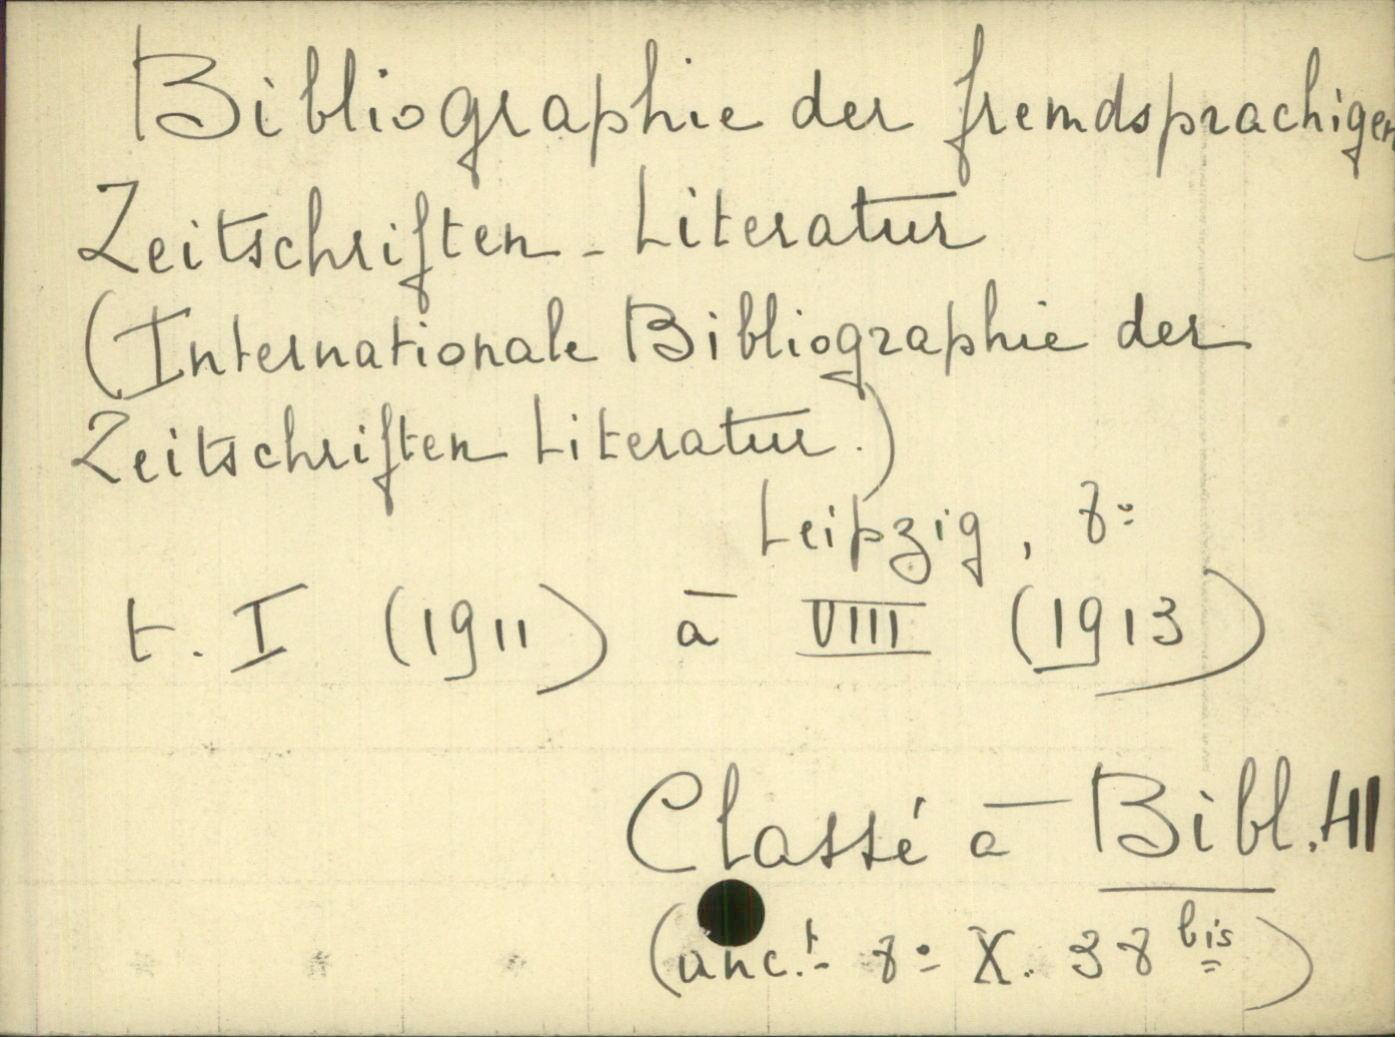 Bibliographie der fremdsprachigen
Zeitschriften-Literatur
(Internationale Bibliographie der
Zeitschriften Literatur.)
Leipzig, 8º
t. I (1911) à VIII (1913)
Classé à Bibl. 411
(anc.t 8º X. 38 bis)